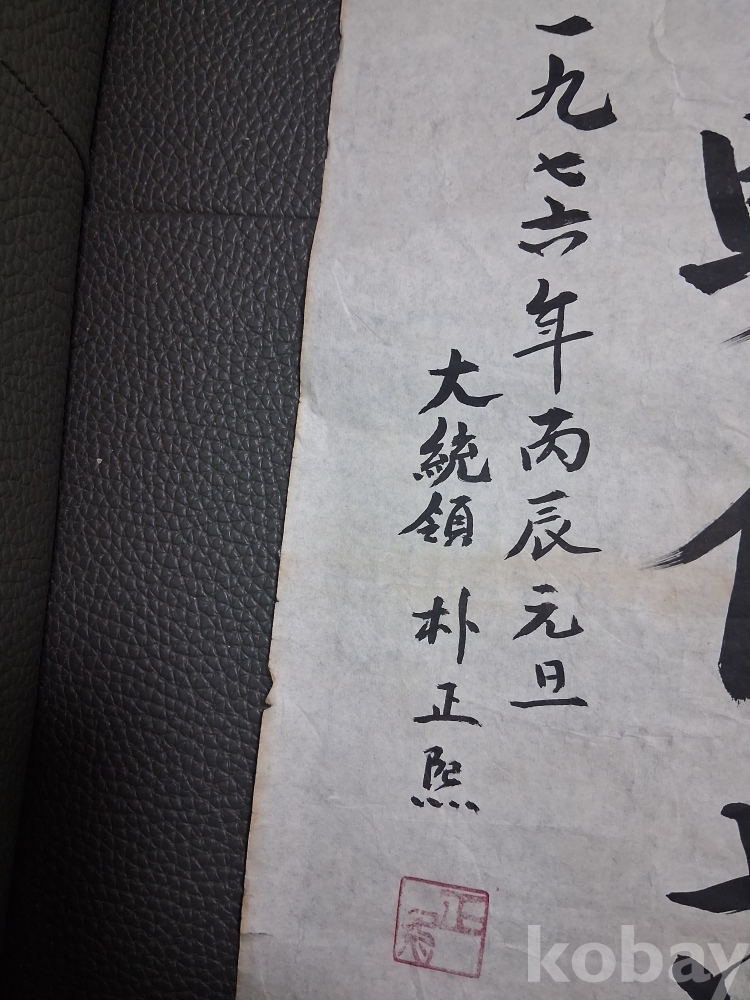 一九七六年丙辰元旦
大統領 朴正熙
正
kobay